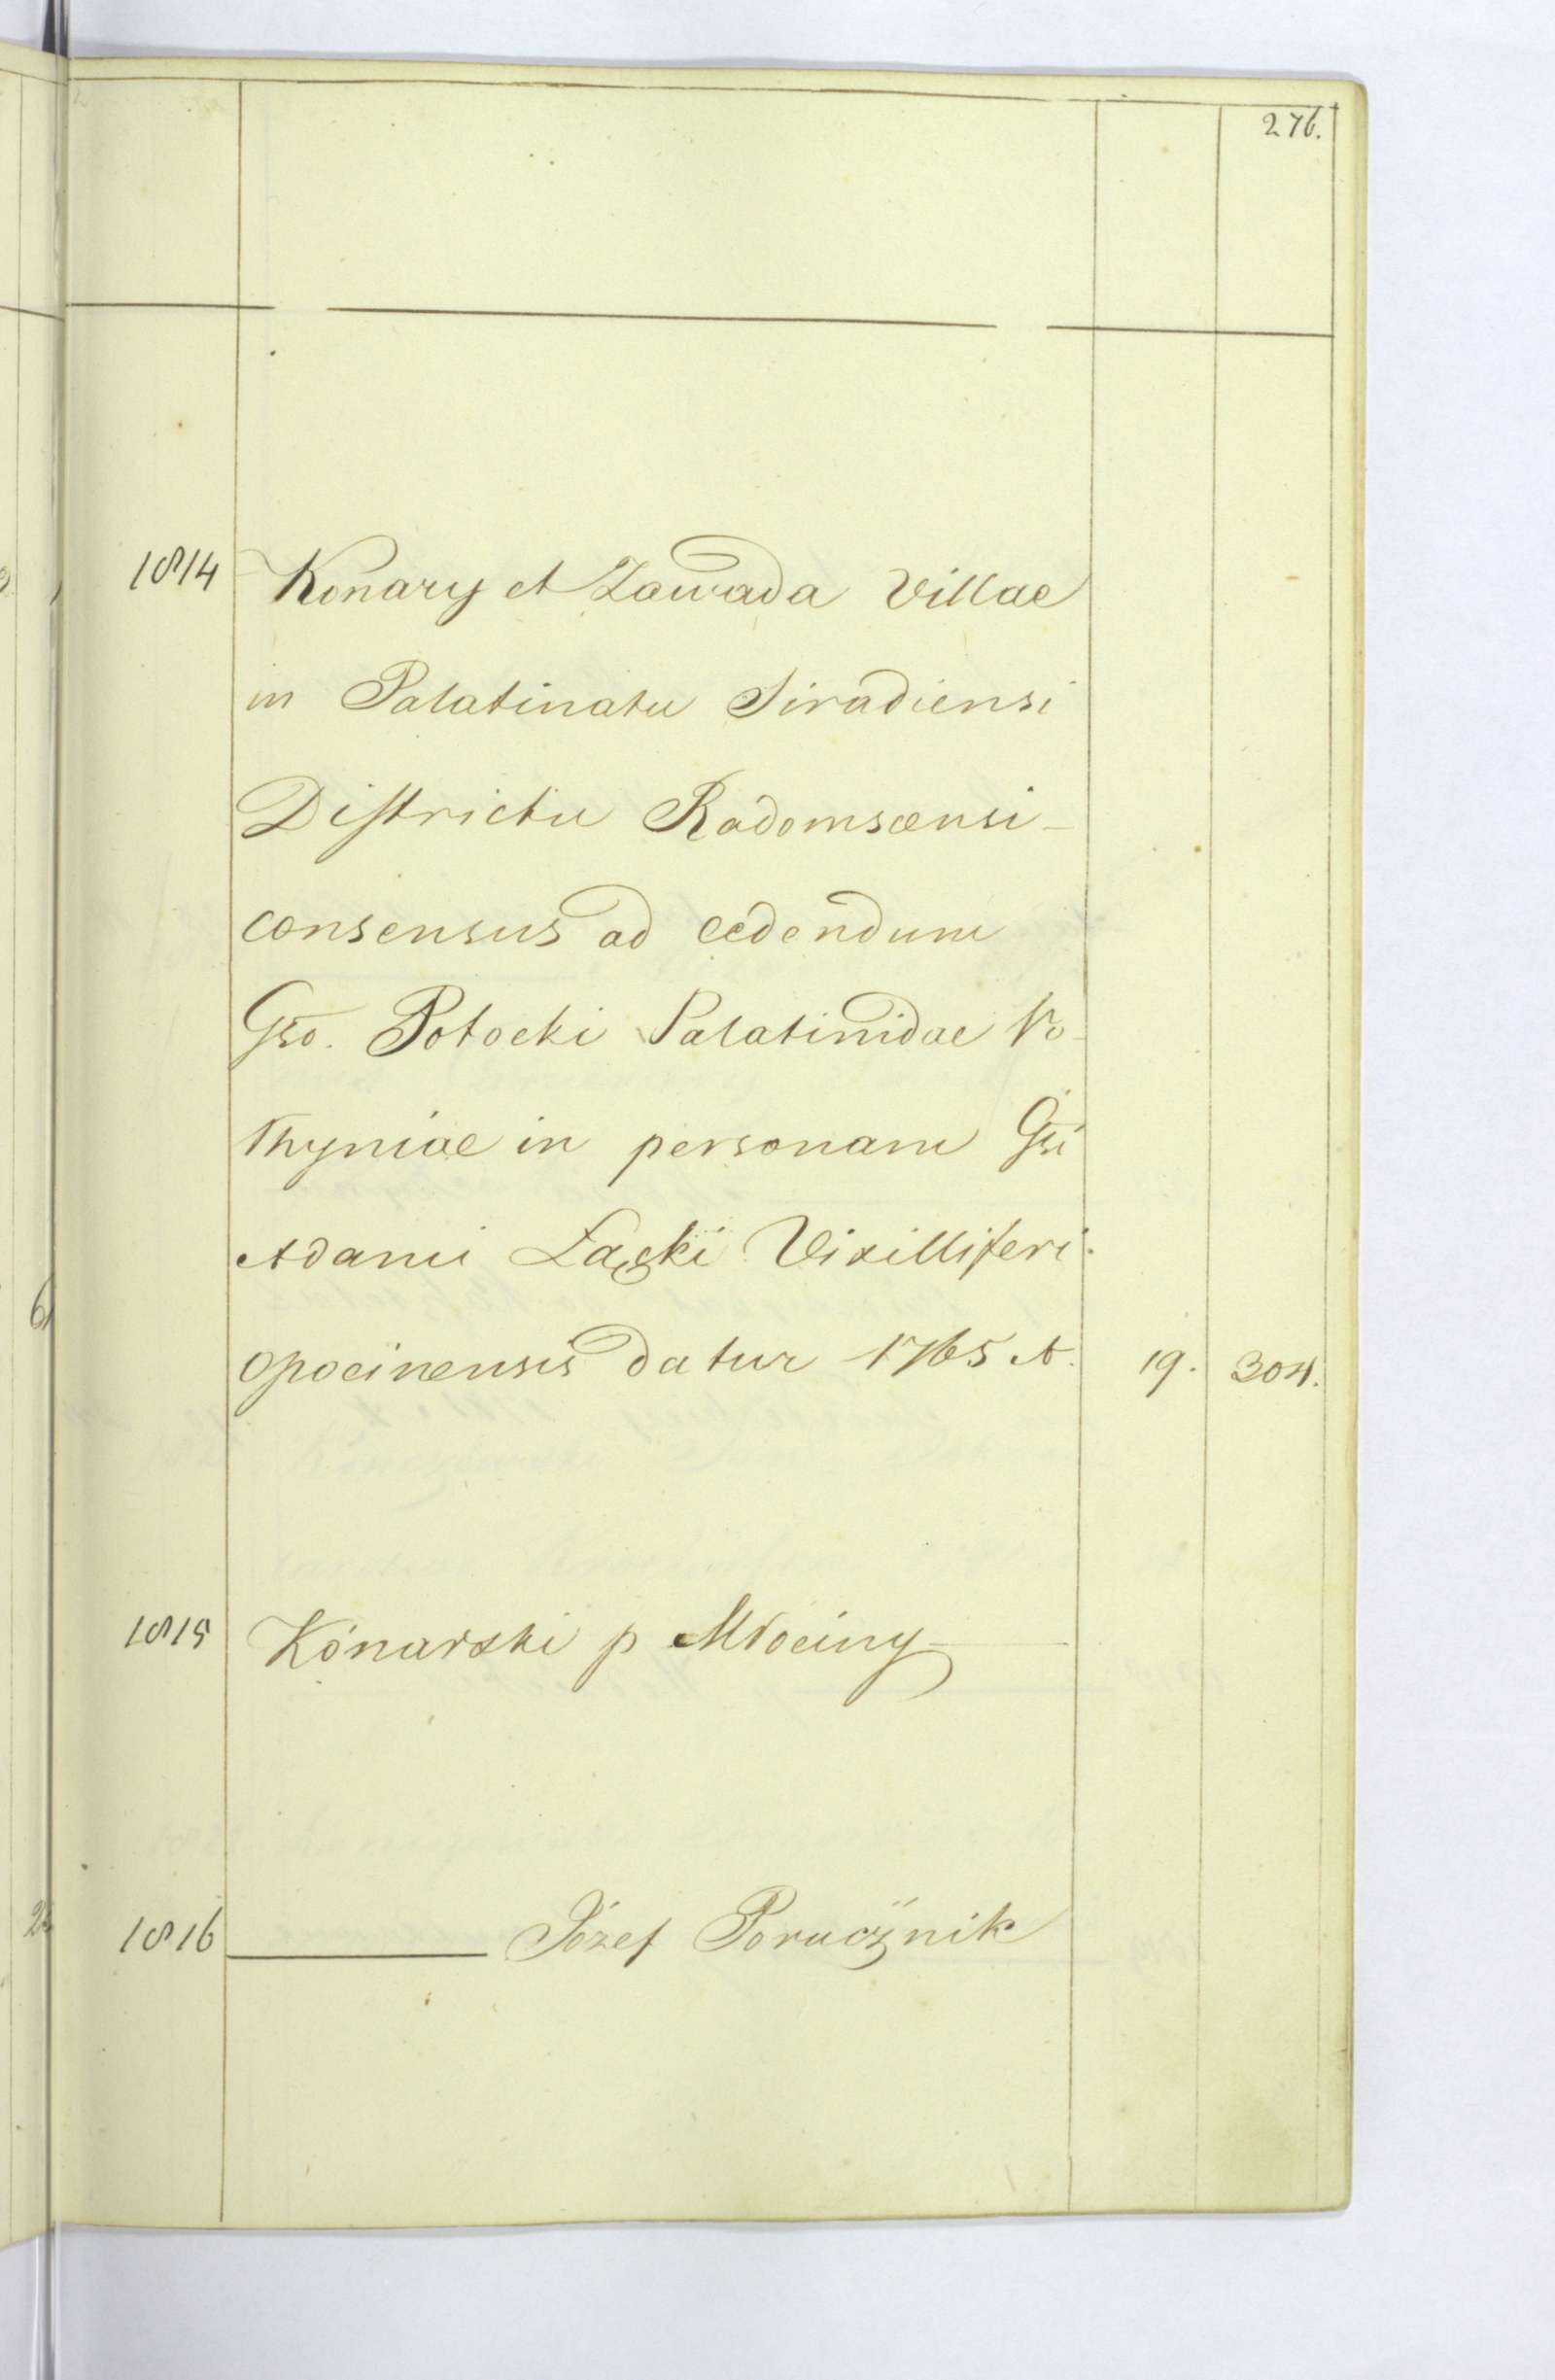 276.
1814 Konary et Zawada Villae
in Palatinatu Siradiensi
Districtu Radomscensi
consensus ad cedendum
Gso. Potocki Palatinidae Vo
lhyniae in personam Gsi
Adami Łącki Vixilliferi
Opocinensis datur 1765 A. 19. 304.
1815 Konarski p Młociny
1816 ——— Józef Porucznik